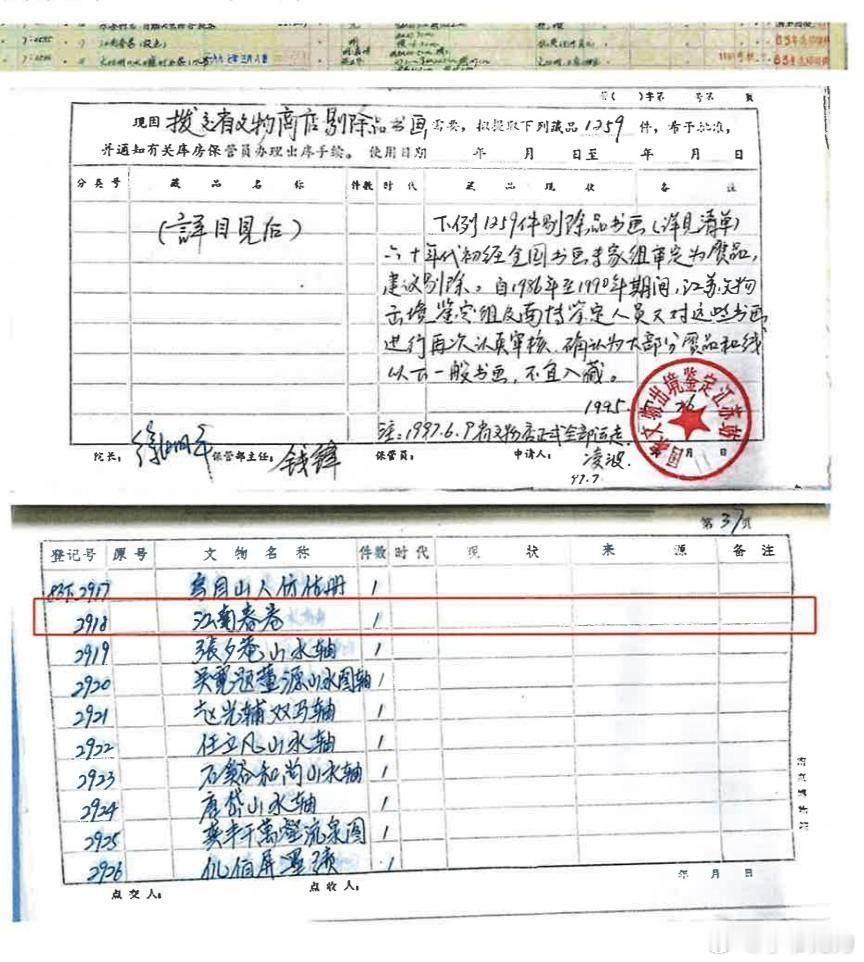 7:0595
江南春卷(设色)
63年选拣时
7:0596
63年选拣时
第( )字第 号第 页
现因 拨交省文物商店剔除品书画 需要,拟提取下列藏品 1259 件,希予批准,
并通知有关库房保管员办理出库手续。 使用日期 年 月 日至 年 月 日
分类号 藏品名称 件数 时代 藏品现状 备注
(詳目見后)
下例1259件剔除品书画(详见清单)
六十年代初经全国书画专家组审定为赝品,
建议剔除。自1986年至1990年期间,江苏文物
出境鉴定组及南博鉴定人员又对这些书画
进行再次认真审核,确认为大部分赝品和线
以下一般书画,不宜入藏。
1995. 26
注:1997.6.9省文物店正式全部运走
院长: 徐湖平 保管部主任: 钱锋 保管员: 申请人: 凌波 年 月 日
97.7.
国家文物出境鉴定江苏站
第 37 页
登记号 原号 文物名称 件数 时代 现状 来源 备注
83T.2917 乌目山人仿古册 1
2918 江南春卷 1
2919 張夕菴山水轴 1
2920 吴寬题董源山水图轴 1
2921 赵光辅双马轴 1
2922 任立凡山水轴 1
2923 石溪和尚山水轴 1
2924 唐岱山水轴 1
2925 龚半千萬壑流泉图 1
2926 仇伯屏墨蹟 1
点交人: 点收人: 年 月 日